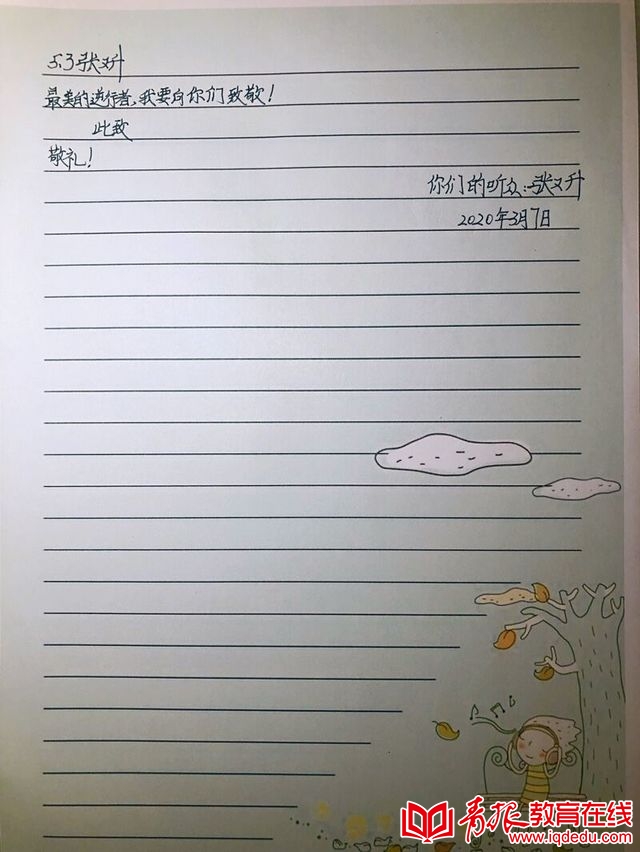 5.3张又升
最美的逆行者，我要向你们致敬！
此致
敬礼！
你们的听众：张又升
2020年3月7日
青报教育在线
www.iqdedu.com